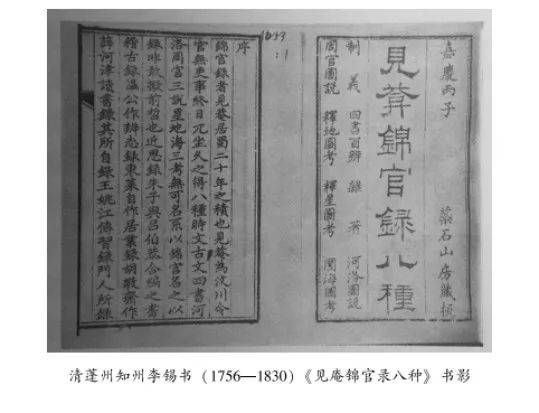 嘉慶丙子
藥石山房藏板
見菴錦官錄八種
制義 四書百辨 雜著 河洛圖說
周官圖說 釋地圖考 釋星圖考 閏海圖考
序
錦官錄者見菴居蜀二十年之積也見菴為汶川令
官無要事終日兀坐久之得八種時文古文四書河
洛周官三說星地海三考無可名系以錦官名之以
錄昨效擬前哲也近思錄朱子與呂伯恭合編之書
稽古錄溫公作辨志錄東萊自作居業錄胡敬齋作
薛河津讀書錄其所自錄王姚江傳習錄門人所錄
清蓬州知州李锡书（1756—1830）《见庵锦官录八种》书影